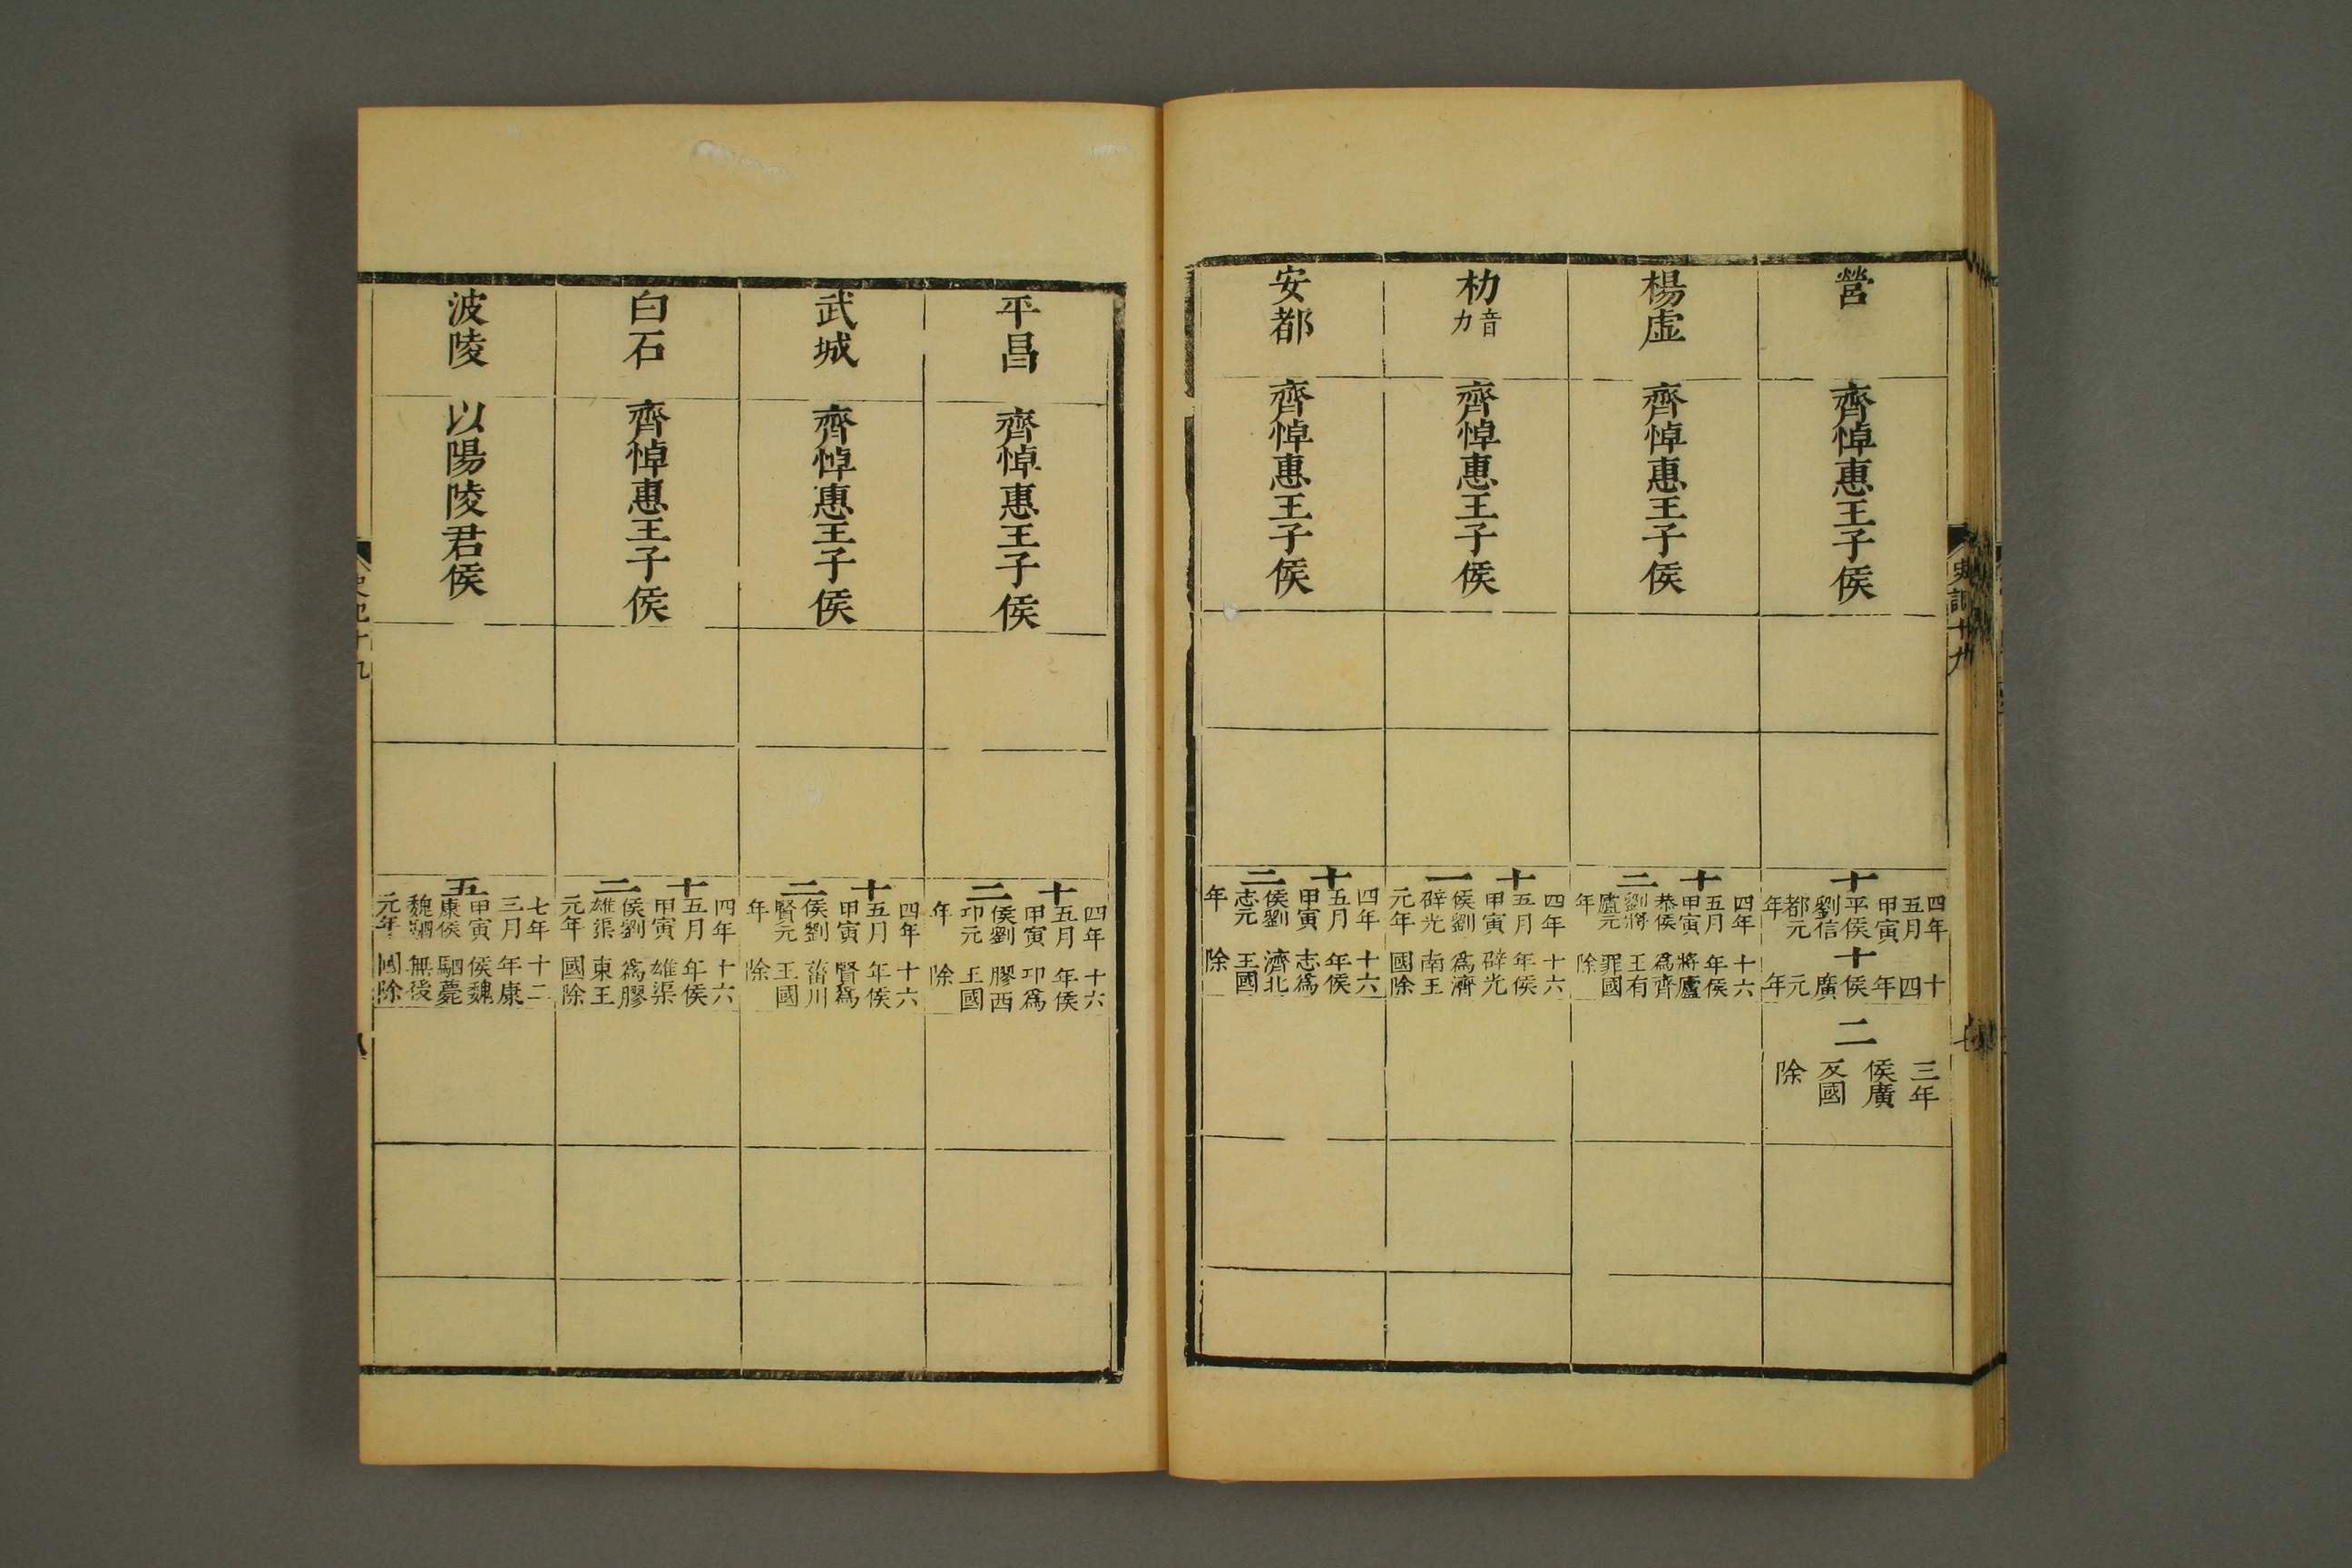 營
齊悼惠王子侯
十
四年
五月
甲寅
平侯
劉信
都元
年
十
十
四
年
侯
廣
元
年
二
三年
侯廣
反國
除
楊虛
齊悼惠王子侯
十二
四年
五月
甲寅
恭侯
劉將
廬元
年
十六
年侯
將廬
爲齊
王有
罪國
除
朸音力
齊悼惠王子侯
十一
四年
五月
甲寅
侯劉
辟光
元年
十六
年侯
辟光
爲濟
南王
國除
安都
齊悼惠王子侯
十二
四年
五月
甲寅
侯劉
志元
年
十六
年侯
志爲
濟北
王國
除
史記十九
七
平昌
齊悼惠王子侯
十二
四年
五月
甲寅
侯劉
卬元
年
十六
年侯
卬爲
膠西
王國
除
武城
齊悼惠王子侯
十二
四年
五月
甲寅
侯劉
賢元
年
十六
年侯
賢爲
菑川
王國
除
白石
齊悼惠王子侯
十二
四年
五月
甲寅
侯劉
雄渠
元年
十六
年侯
雄渠
爲膠
東王
國除
波陵
以陽陵君侯
五
七年
三月
甲寅
康侯
魏駟
元年
十二
年康
侯魏
駟薨
無後
國除
史記十九
八